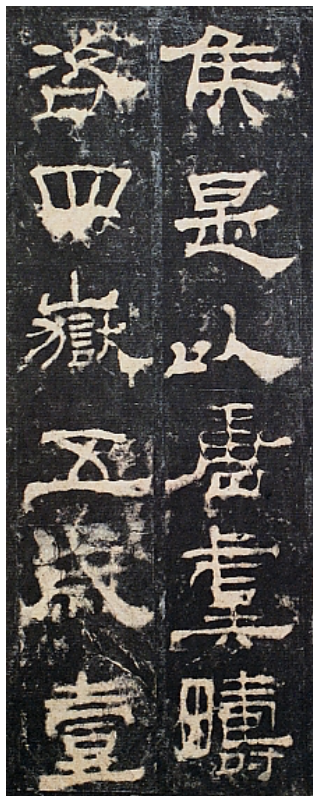 侯是以唐虞疇
咨四嶽五歲壹